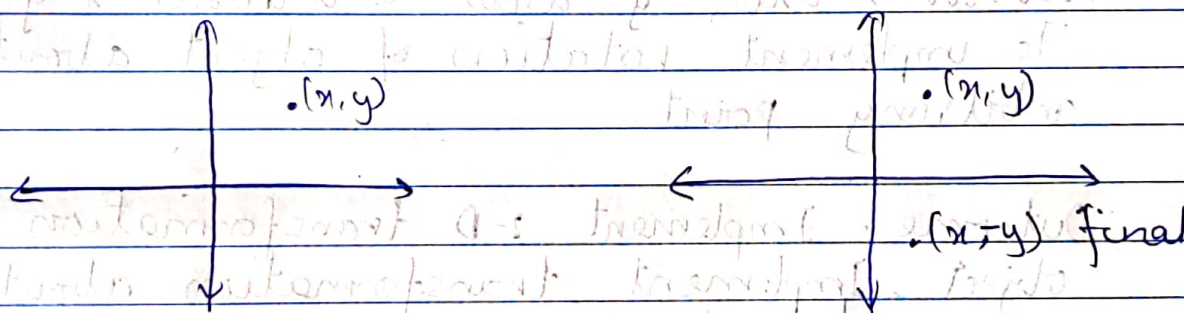 .(x,y)
.(x,y)
.(x,-y) final